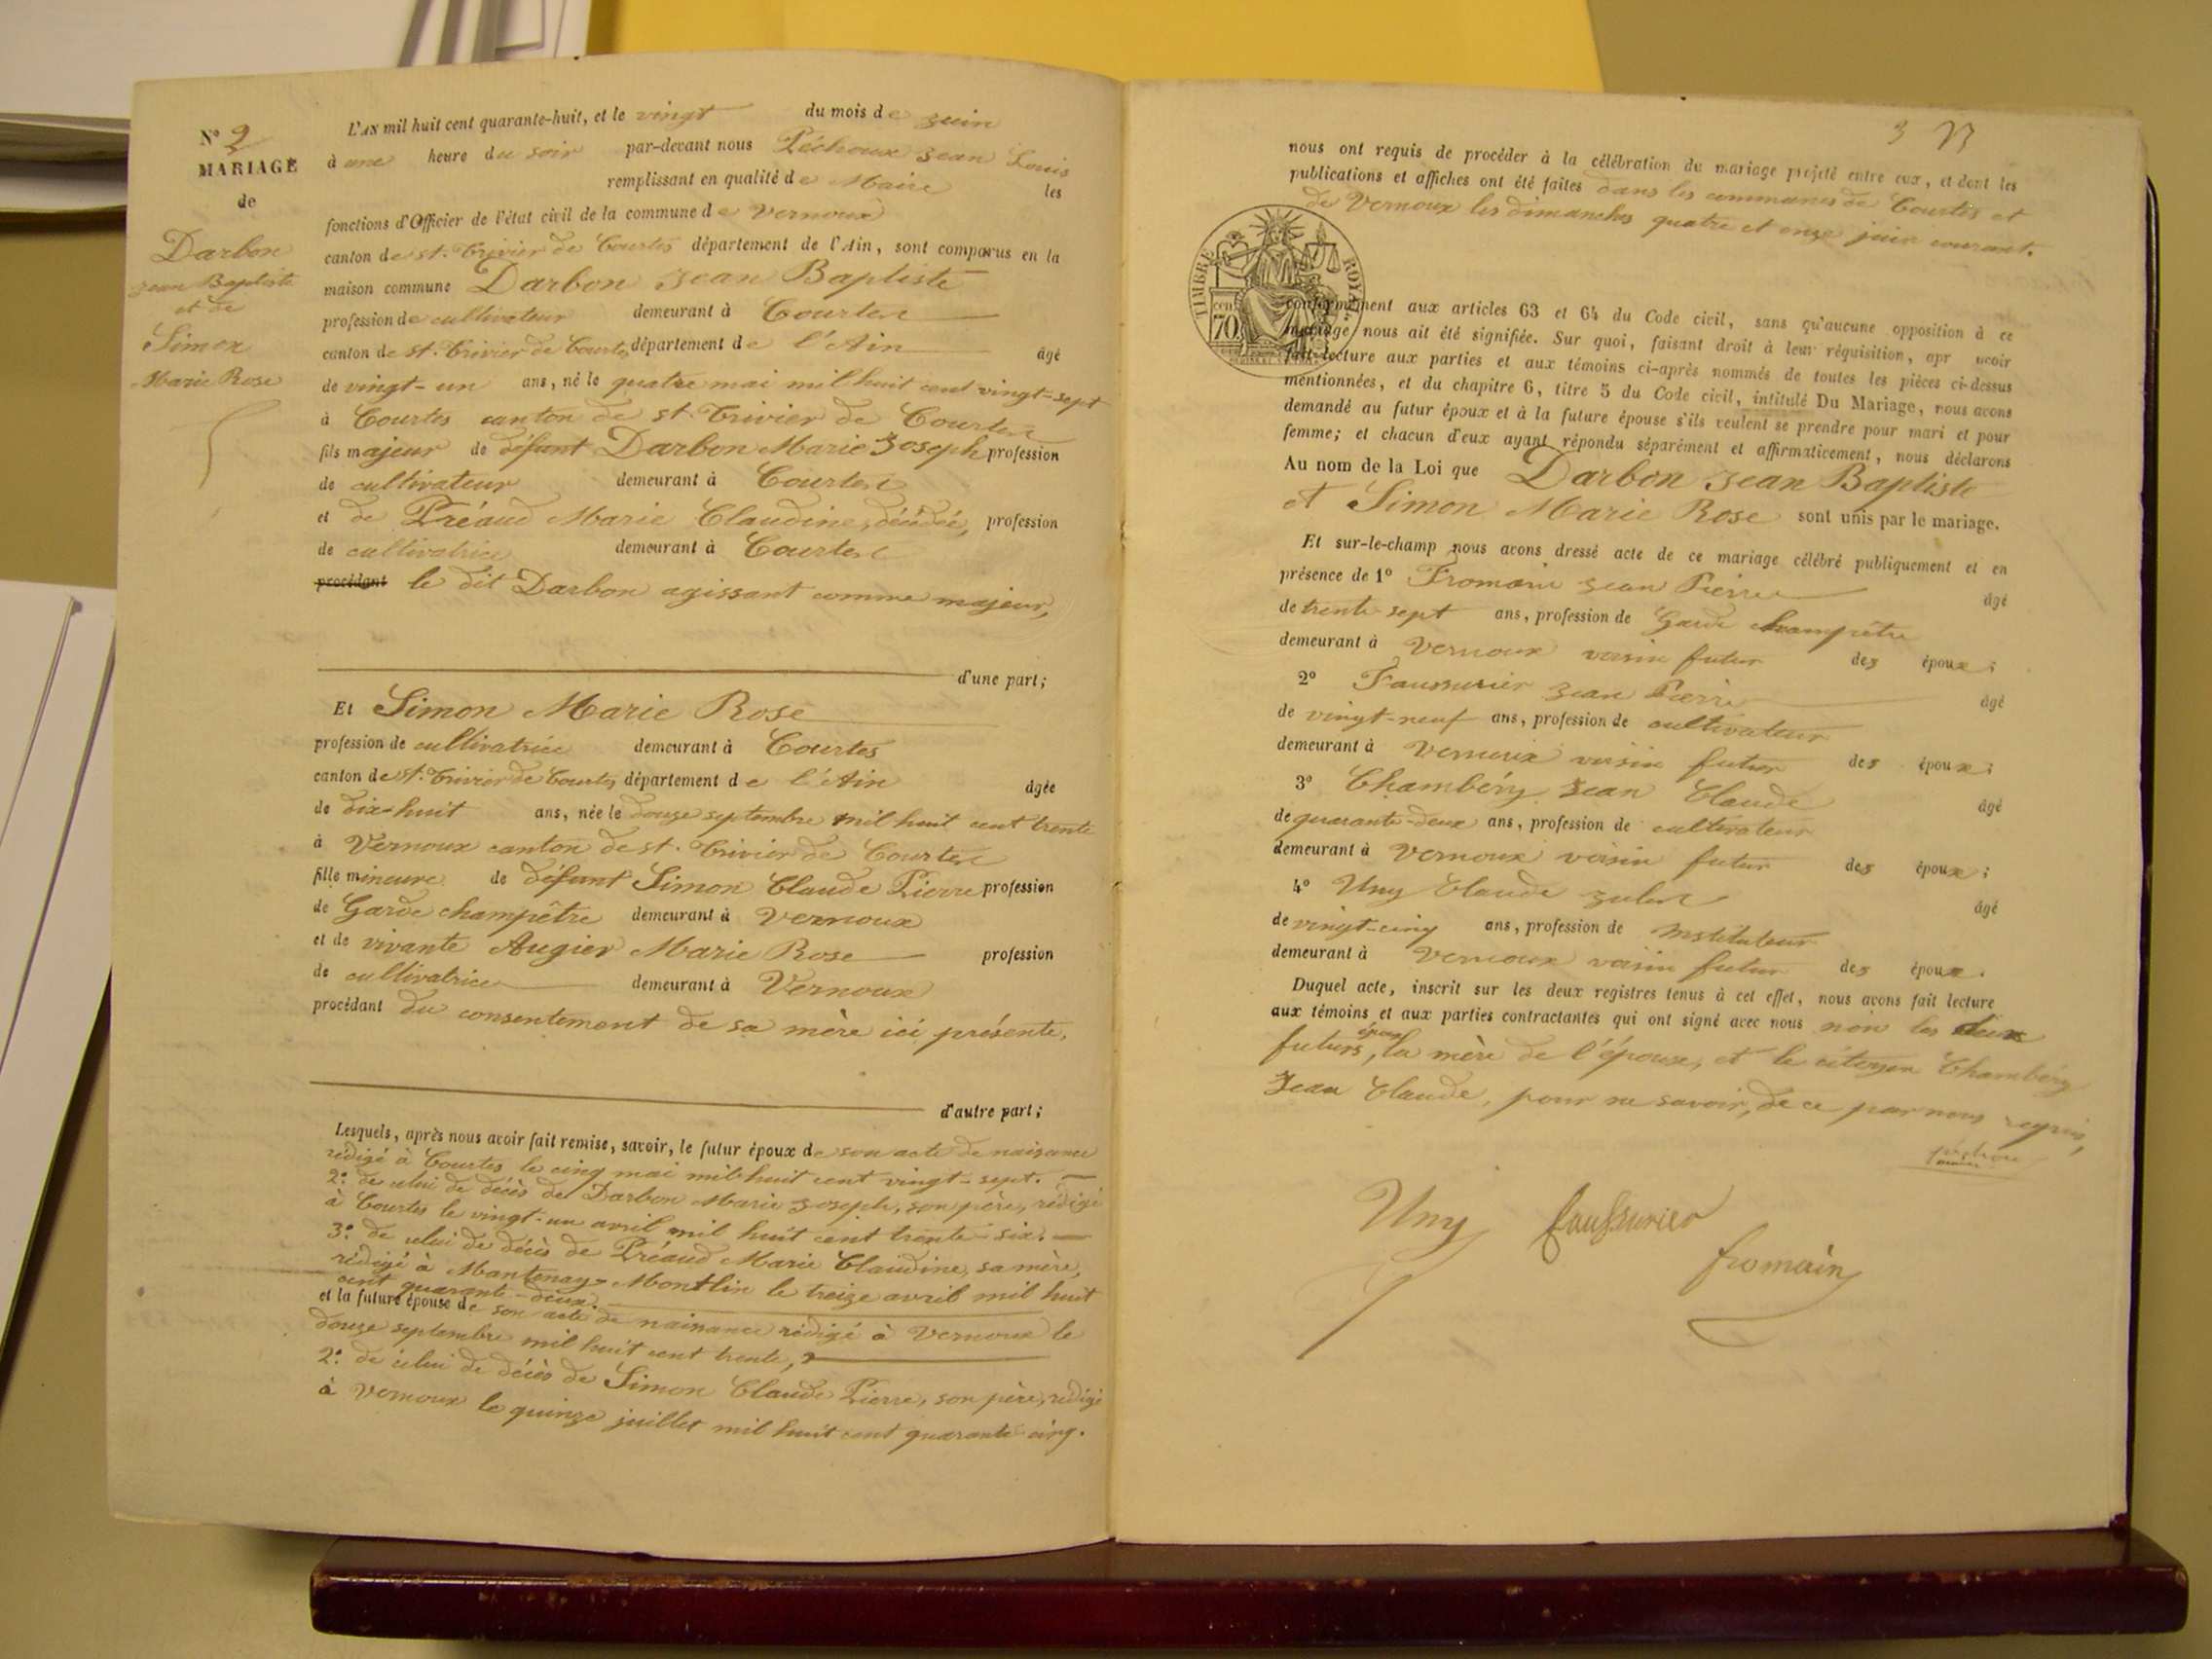 N° 2
MARIAGE
de
Darbon
Jean Baptiste
et de
Simon
Marie Rose
L'AN mil huit cent quarante-huit, et le vingt du mois de juin
à une heure du soir par-devant nous Péchoux Jean Louis
remplissant en qualité de Maire les
fonctions d'Officier de l'état civil de la commune de Vernoux
canton de st. Trivier de Courtes département de l'Ain, sont comparus en la
maison commune Darbon Jean Baptiste
profession de cultivateur demeurant à Courtes
canton de st. Trivier de Courtes département de l'Ain âgé
de vingt-un ans, né le quatre mai mil huit cent vingt-sept
à Courtes canton de st. Trivier de Courtes
fils majeur de défunt Darbon Marie Joseph profession
de cultivateur demeurant à Courtes
et de Préaud Marie Claudine, décédée, profession
de cultivatrice demeurant à Courtes
procédant le dit Darbon agissant comme majeur,
d'une part;
Et Simon Marie Rose
profession de cultivatrice demeurant à Courtes
canton de st. Trivier de Courtes département de l'Ain âgée
de dix-huit ans, née le douze septembre mil huit cent trente
à Vernoux canton de st. Trivier de Courtes
fille mineure de défunt Simon Claude Pierre profession
de Garde champêtre demeurant à Vernoux
et de vivante Augier Marie Rose profession
de cultivatrice demeurant à Vernoux
procédant du consentement de sa mère ici présente,
d'autre part;
Lesquels, après nous avoir fait remise, savoir, le futur époux de son acte de naissance
rédigé à Courtes le cinq mai mil huit cent vingt-sept.
2° de celui de décès de Darbon Marie Joseph, son père, rédigé
à Courtes le vingt-un avril mil huit cent trente-six.
3° de celui de décès de Préaud Marie Claudine, sa mère,
rédigé à Mantenay-Montlin le treize avril mil huit
cent quarante-deux.
et la future épouse de son acte de naissance rédigé à Vernoux le
douze septembre mil huit cent trente,
2° de celui de décès de Simon Claude Pierre, son père, rédigé
à Vernoux le quinze juillet mil huit cent quarante cinq.
3
nous ont requis de procéder à la célébration du mariage projeté entre eux, et dont les
publications et affiches ont été faites dans les communes de Courtes et
de Vernoux les dimanches quatre et onze juin courant.
TIMBRE ROYAL
70
conformément aux articles 63 et 64 du Code civil, sans qu'aucune opposition à ce
mariage nous ait été signifiée. Sur quoi, faisant droit à leur réquisition, apr avoir
fait lecture aux parties et aux témoins ci-après nommés de toutes les pièces ci-dessus
mentionnées, et du chapitre 6, titre 5 du Code civil, intitulé Du Mariage, nous avons
demandé au futur époux et à la future épouse s'ils veulent se prendre pour mari et pour
femme; et chacun d'eux ayant répondu séparément et affirmativement, nous déclarons
Au nom de la Loi que Darbon Jean Baptiste
et Simon Marie Rose sont unis par le mariage.
Et sur-le-champ nous avons dressé acte de ce mariage célébré publiquement et en
présence de 1° Fromain Jean Pierre âgé
de trente-sept ans, profession de Garde champêtre
demeurant à Vernoux voisin futur des époux;
2° Faussurier Jean Pierre âgé
de vingt-neuf ans, profession de cultivateur
demeurant à Vernoux voisin futur des époux;
3° Chambéry Jean Claude âgé
de quarante-deux ans, profession de cultivateur
demeurant à Vernoux voisin futur des époux;
4° Uny Claude Jules âgé
de vingt-cinq ans, profession de Instituteur
demeurant à Vernoux voisin futur des époux.
Duquel acte, inscrit sur les deux registres tenus à cet effet, nous avons fait lecture
aux témoins et aux parties contractantes qui ont signé avec nous non les deux
futurs époux, la mère de l'épouse, et le citoyen Chambéry
Jean Claude, pour ne savoir, de ce par nous requis,
Uny Faussurier
fromain